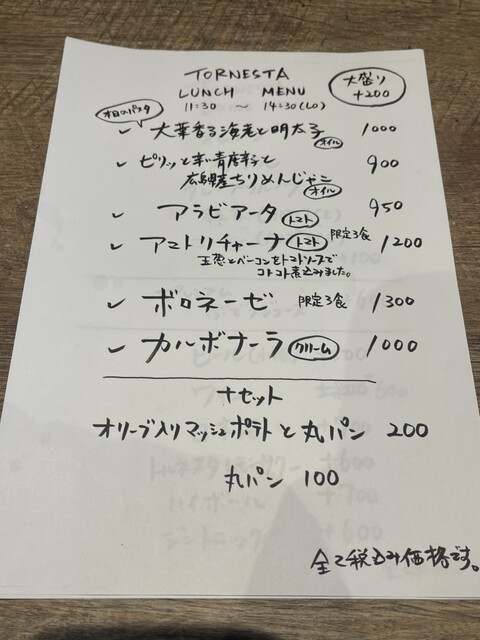 TORNESTA
LUNCH MENU
11:30 〜 14:30(LO)
大盛り
+200
本日のパスタ
✓ 大葉香る海老と明太子 オイル 1000
✓ ピリッと辛い青唐辛子と
広島産ちりめんじゃこ オイル 900
✓ アラビアータ トマト 950
✓ アマトリチャーナ トマト 限定3食 1200
玉葱とベーコンをトマトソースで
コトコト煮込みました。
✓ ボロネーゼ 限定3食 1300
✓ カルボナーラ クリーム 1000
+セット
オリーブ入りマッシュポテトと丸パン 200
丸パン 100
全て税込み価格です。